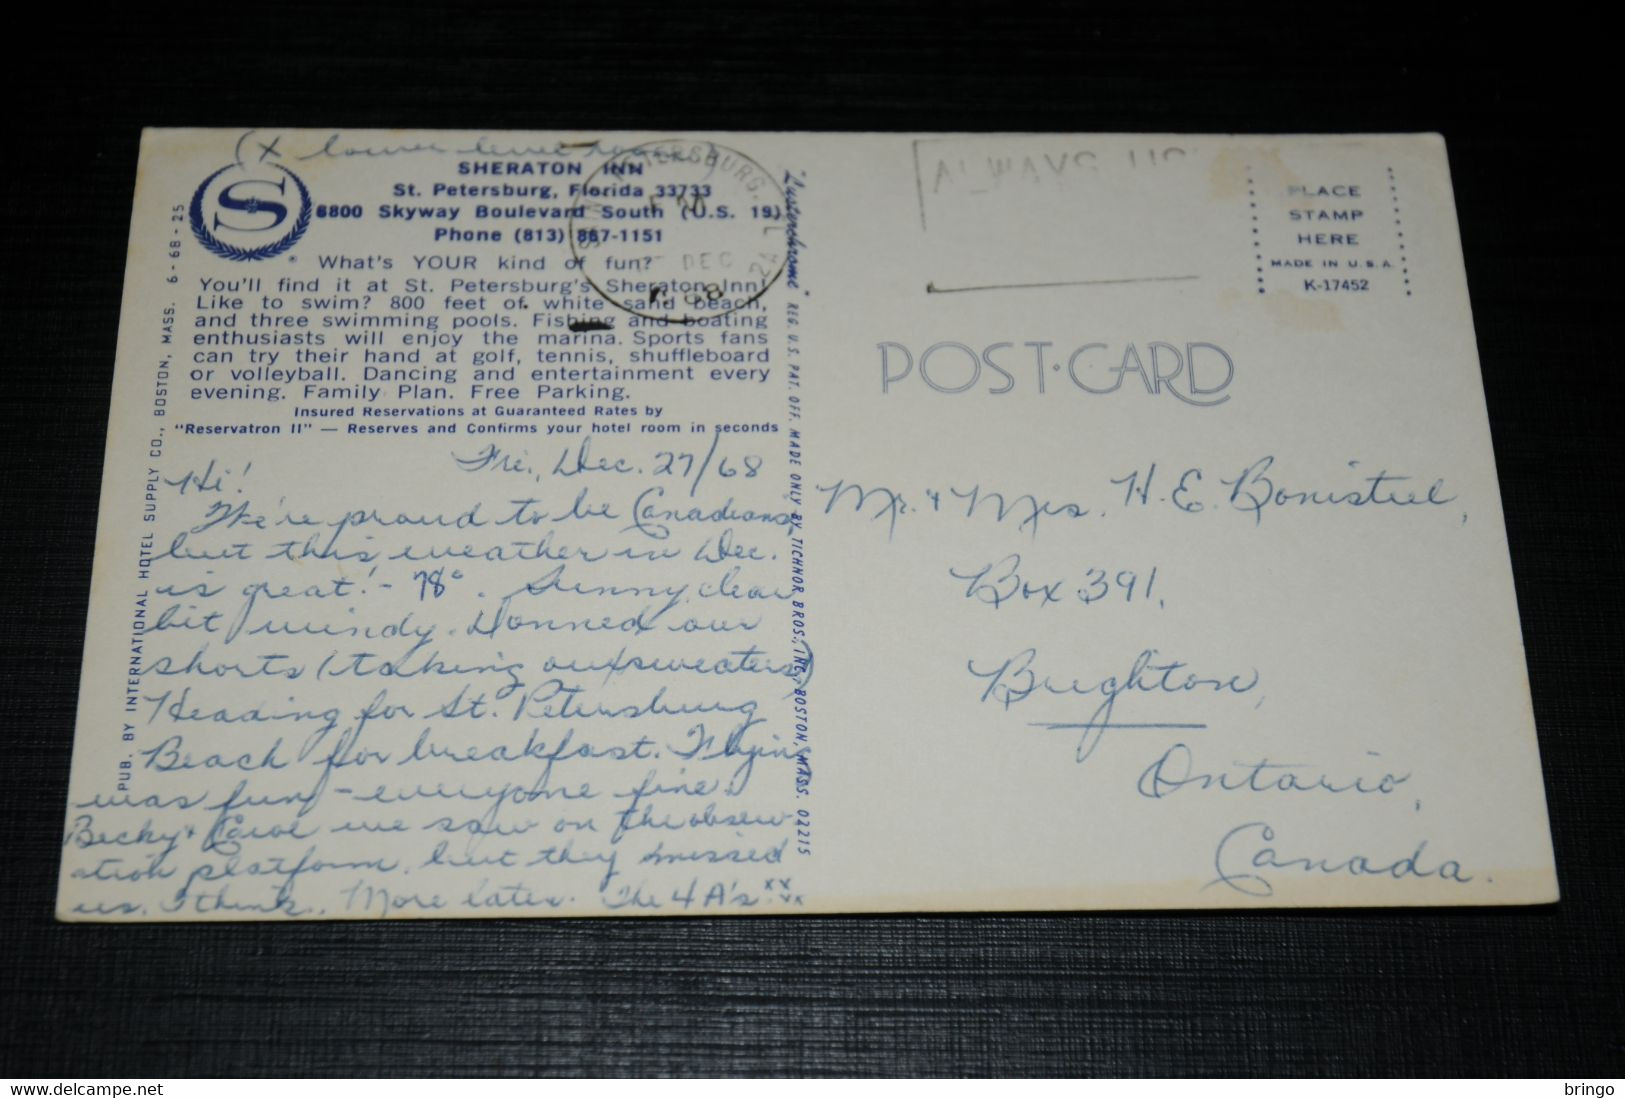 (X lower level room)
SHERATON INN
St. Petersburg, Florida 33733
6800 Skyway Boulevard South (U.S. 19)
Phone (813) 867-1151
What's YOUR kind of fun?
You'll find it at St. Petersburg's Sheraton Inn!
Like to swim? 800 feet of white sand beach,
and three swimming pools. Fishing and boating
enthusiasts will enjoy the marina. Sports fans
can try their hand at golf, tennis, shuffleboard
or volleyball. Dancing and entertainment every
evening. Family Plan. Free Parking.
Insured Reservations at Guaranteed Rates by
"Reservatron II" — Reserves and Confirms your hotel room in seconds
S
®
PETERSBURG, FL
PM
DEC
68
ALWAYS US
PLACE
STAMP
HERE
MADE IN U.S.A.
K-17452
POST-CARD
PUB. BY INTERNATIONAL HOTEL SUPPLY CO., BOSTON, MASS. 6-68-25
"Lusterchrome" REG. U.S. PAT. OFF. MADE ONLY BY TICHNOR BROS., INC., BOSTON, MASS. 02215
Fri., Dec. 27/68
Hi!
We're proud to be Canadians,
but this weather in Dec.
is great! - 78°. Sunny, clear
bit windy. Donned our
shorts (taking our sweaters)
Heading for St. Petersburg
Beach for breakfast. Flying
was fun - everyone fine.
Becky & Carol we saw on the observ-
ation platform, but they missed
us, I think. More later. The 4 A's xx
xx
Mr. & Mrs. H. E. Bonisteel,
Box 391,
Brighton,
Ontario,
Canada.
bringo